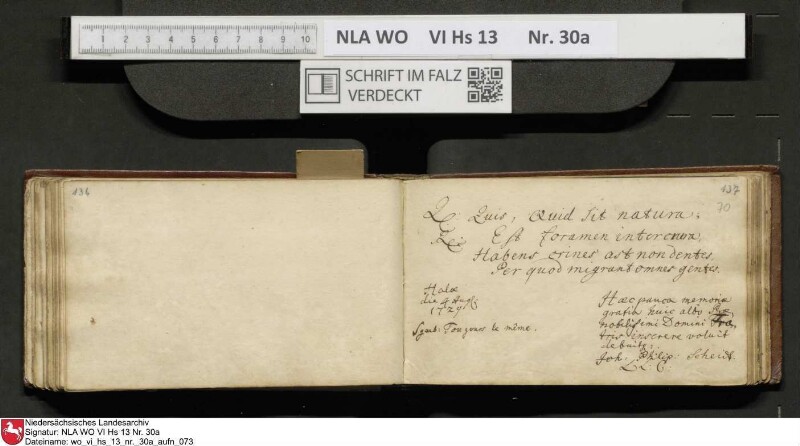 0 1 2 3 4 5 6 7 8 9 10
NLA WO VI Hs 13 Nr. 30a
SCHRIFT IM FALZ
VERDECKT
136
137
70
Quis, Quid sit natura,
Est foramen inter crura,
Habens crines ast non dentes,
Per quod migrant omnes gentes.
Halæ
die 4 Aug.
1729.
Symb. Toujours le même.
Hæc pauca memoriæ
gratia huic albo
nobilissimi Domini Fra,
tris inserere voluit
debuit,
Joh. Philip. Scheidt.
Niedersächsisches Landesarchiv
Signatur: NLA WO VI Hs 13 Nr. 30a
Dateiname: wo_vi_hs_13_nr._30a_aufn_073